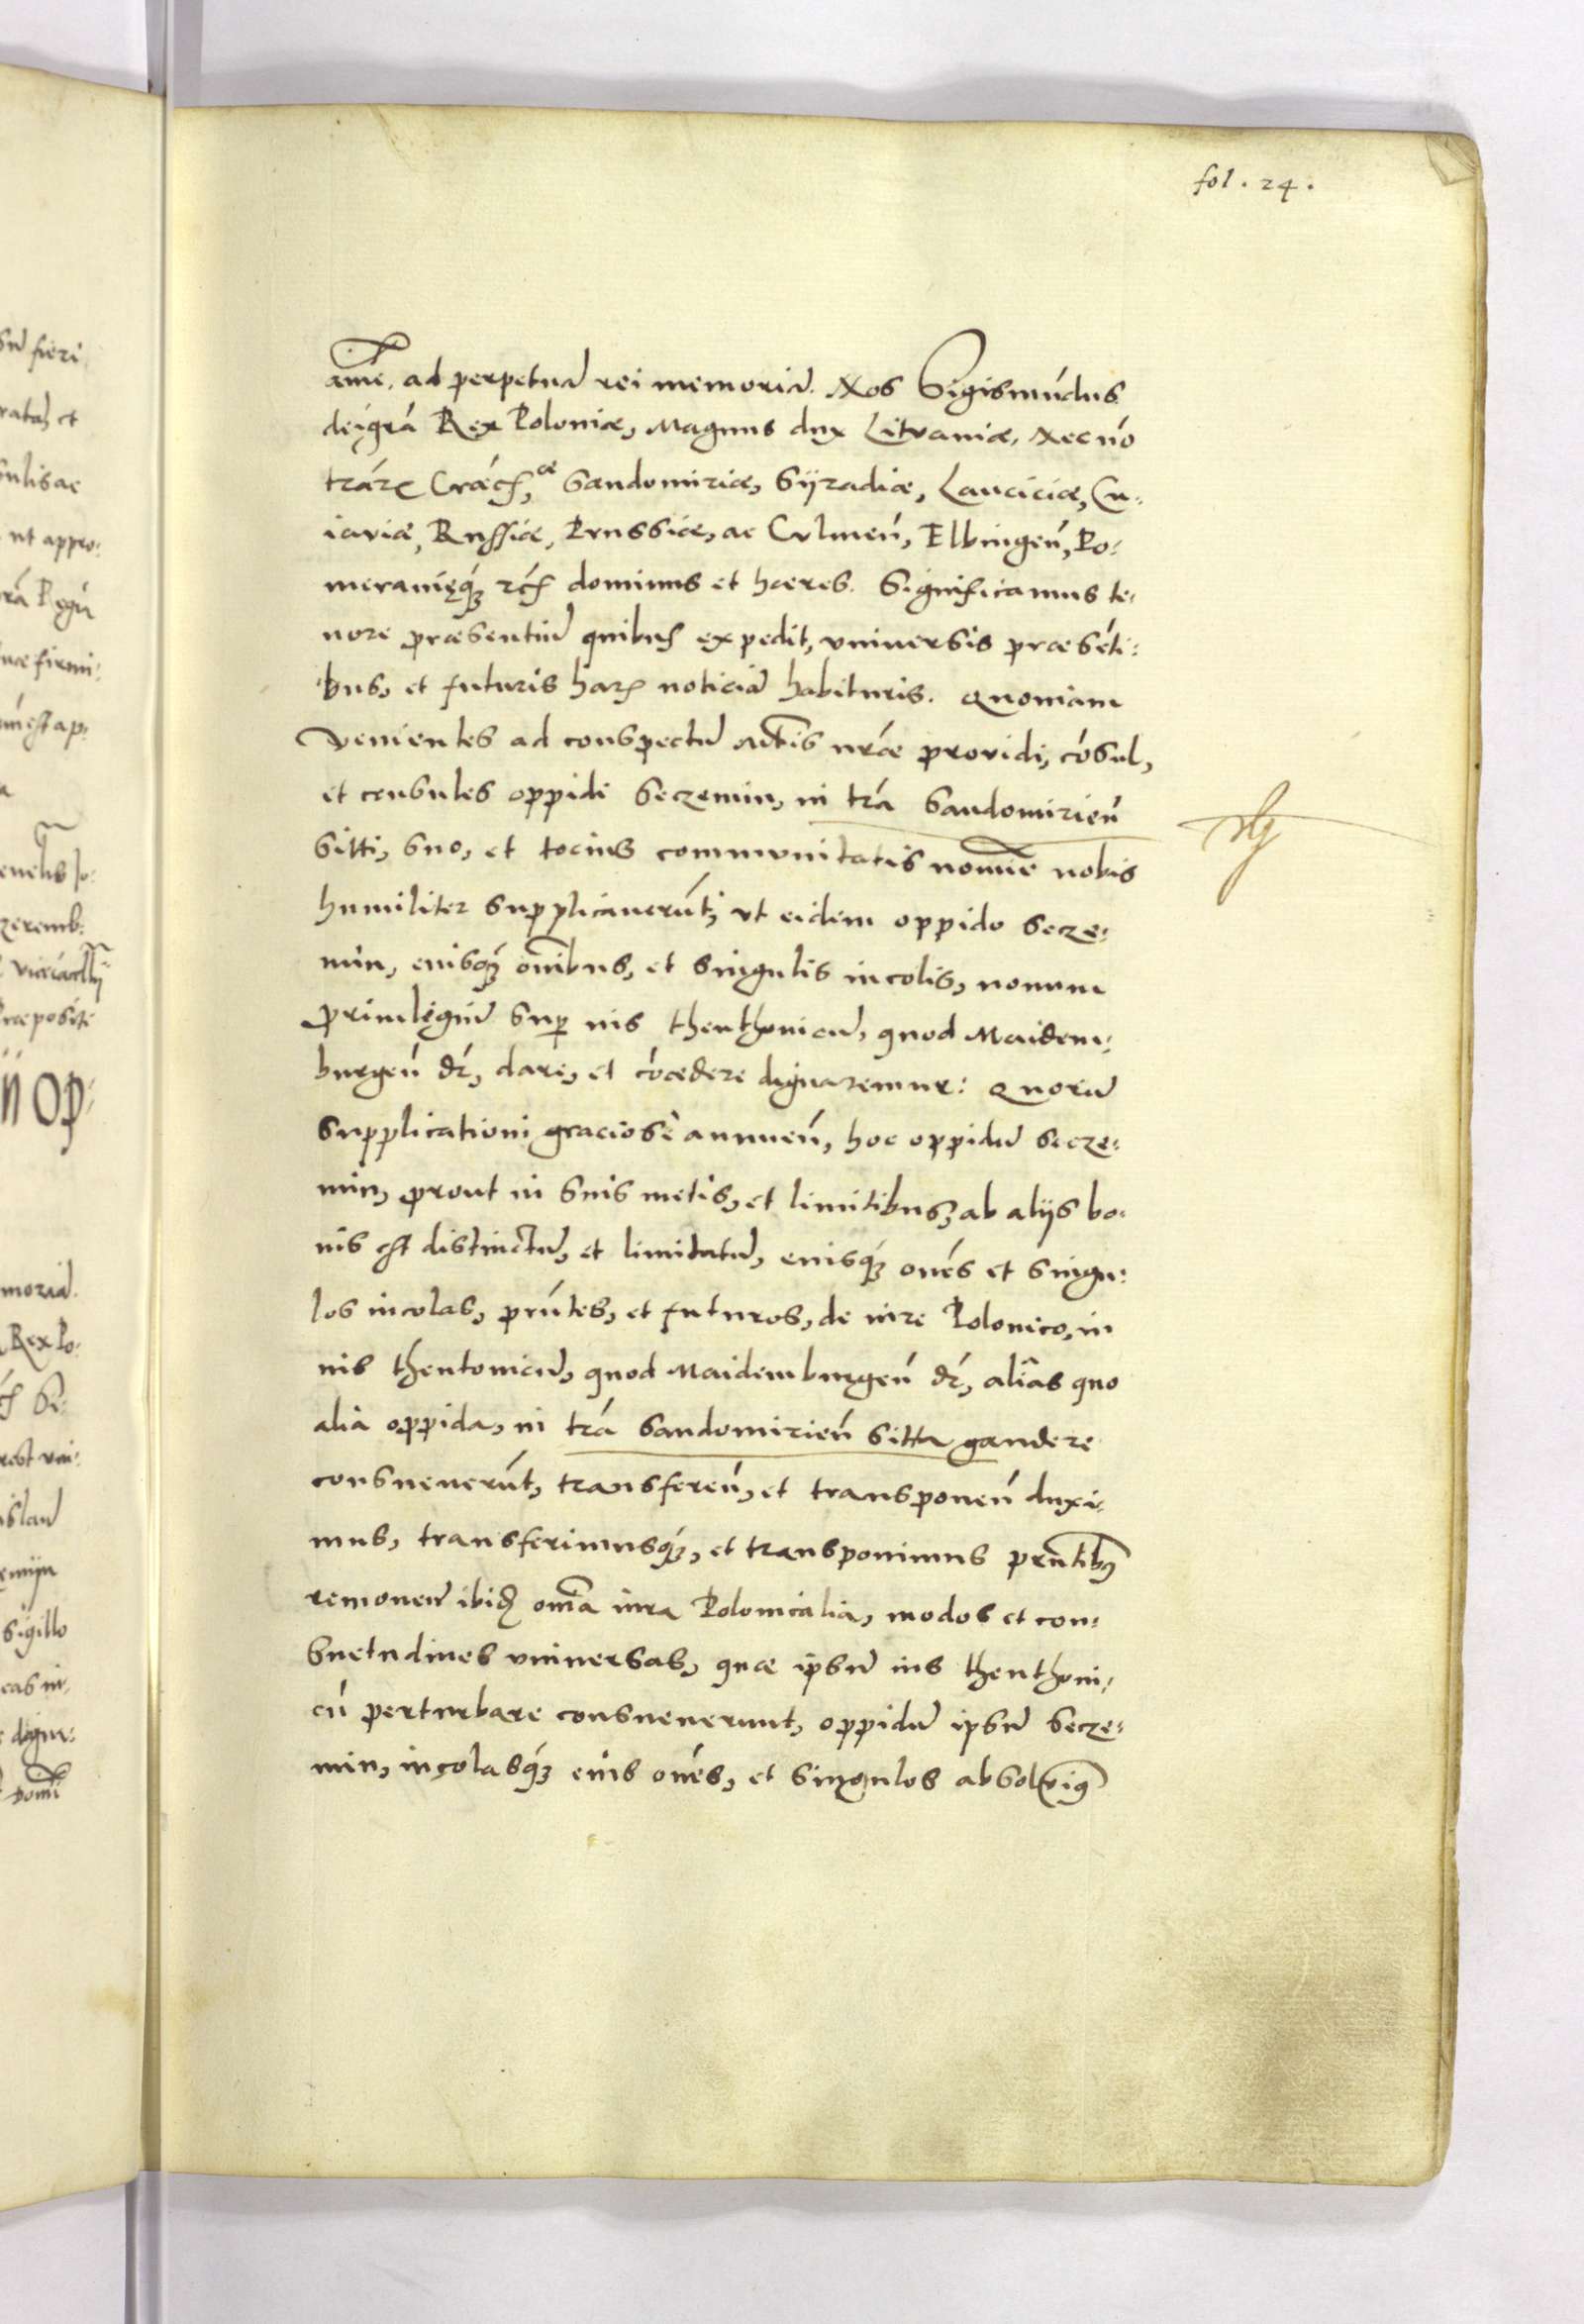 fol . 24 .
amē. ad perpetuā rei memoriā. Nos Sigismūdus
dei grā Rex Poloniæ, Magnus dux Litvaniæ, Necnō
trārꝝ Cracꝭ, Sandomiriæ, Syradiæ, Lanciciæ, Cu-
iaviæ, Russiæ, Prussiæ, ac Culmeñ, Elbingeñ, Po-
meranięq́ꝫ dominus et hæres. Significamus te-
nore præsentiū quibus expedit, universis præsēti-
bus, et futuris harꝝ noticiā habituris. Quoniam
Venientes ad conspectū Mtis nræ providi, cōsul,
et consules oppidi Seczemin, in trā Sandomirieñ
sitti, suo, et tocius communitatis nomīe nobis
humiliter supplicaverūt, ut eidem oppido Secze-
min, eiusq́ꝫ oīnibus, et singulis incolis, nouum
privilęgiū sup ius theuthonicū, quod Maidem-
burgeñ dr̄, dare, et cōcedere dignaremur: Quorū
supplicationi graciosè annueñ, hoc oppidū Secze-
min, prout in suis metis, et limitibus, ab aliis bo-
nis est distinctū, et limitatū, eiusq́ꝫ oēs et singu-
los incolas, prūtes, et futuros, de iure Polonico, in
ius theutonicū, quod Maidemburgeñ dr̄, aliâs quo
alia oppida, in trā Sandomirieñ sitta gaudere
consueuerūt, transfereñ, et transponeñ duxi-
mus, transferimusq́ꝫ, et transponimus prūtibꝰ
remoueñ ibiđ oīa iura Polonicalia, modos et con-
suetudines universas, quæ ipsū ius theuthoni-
cū perturbare consueuerunt, oppidū ipsū Secze-
min, incolasq́ꝫ eius oēs, et singulos absolviꝰ